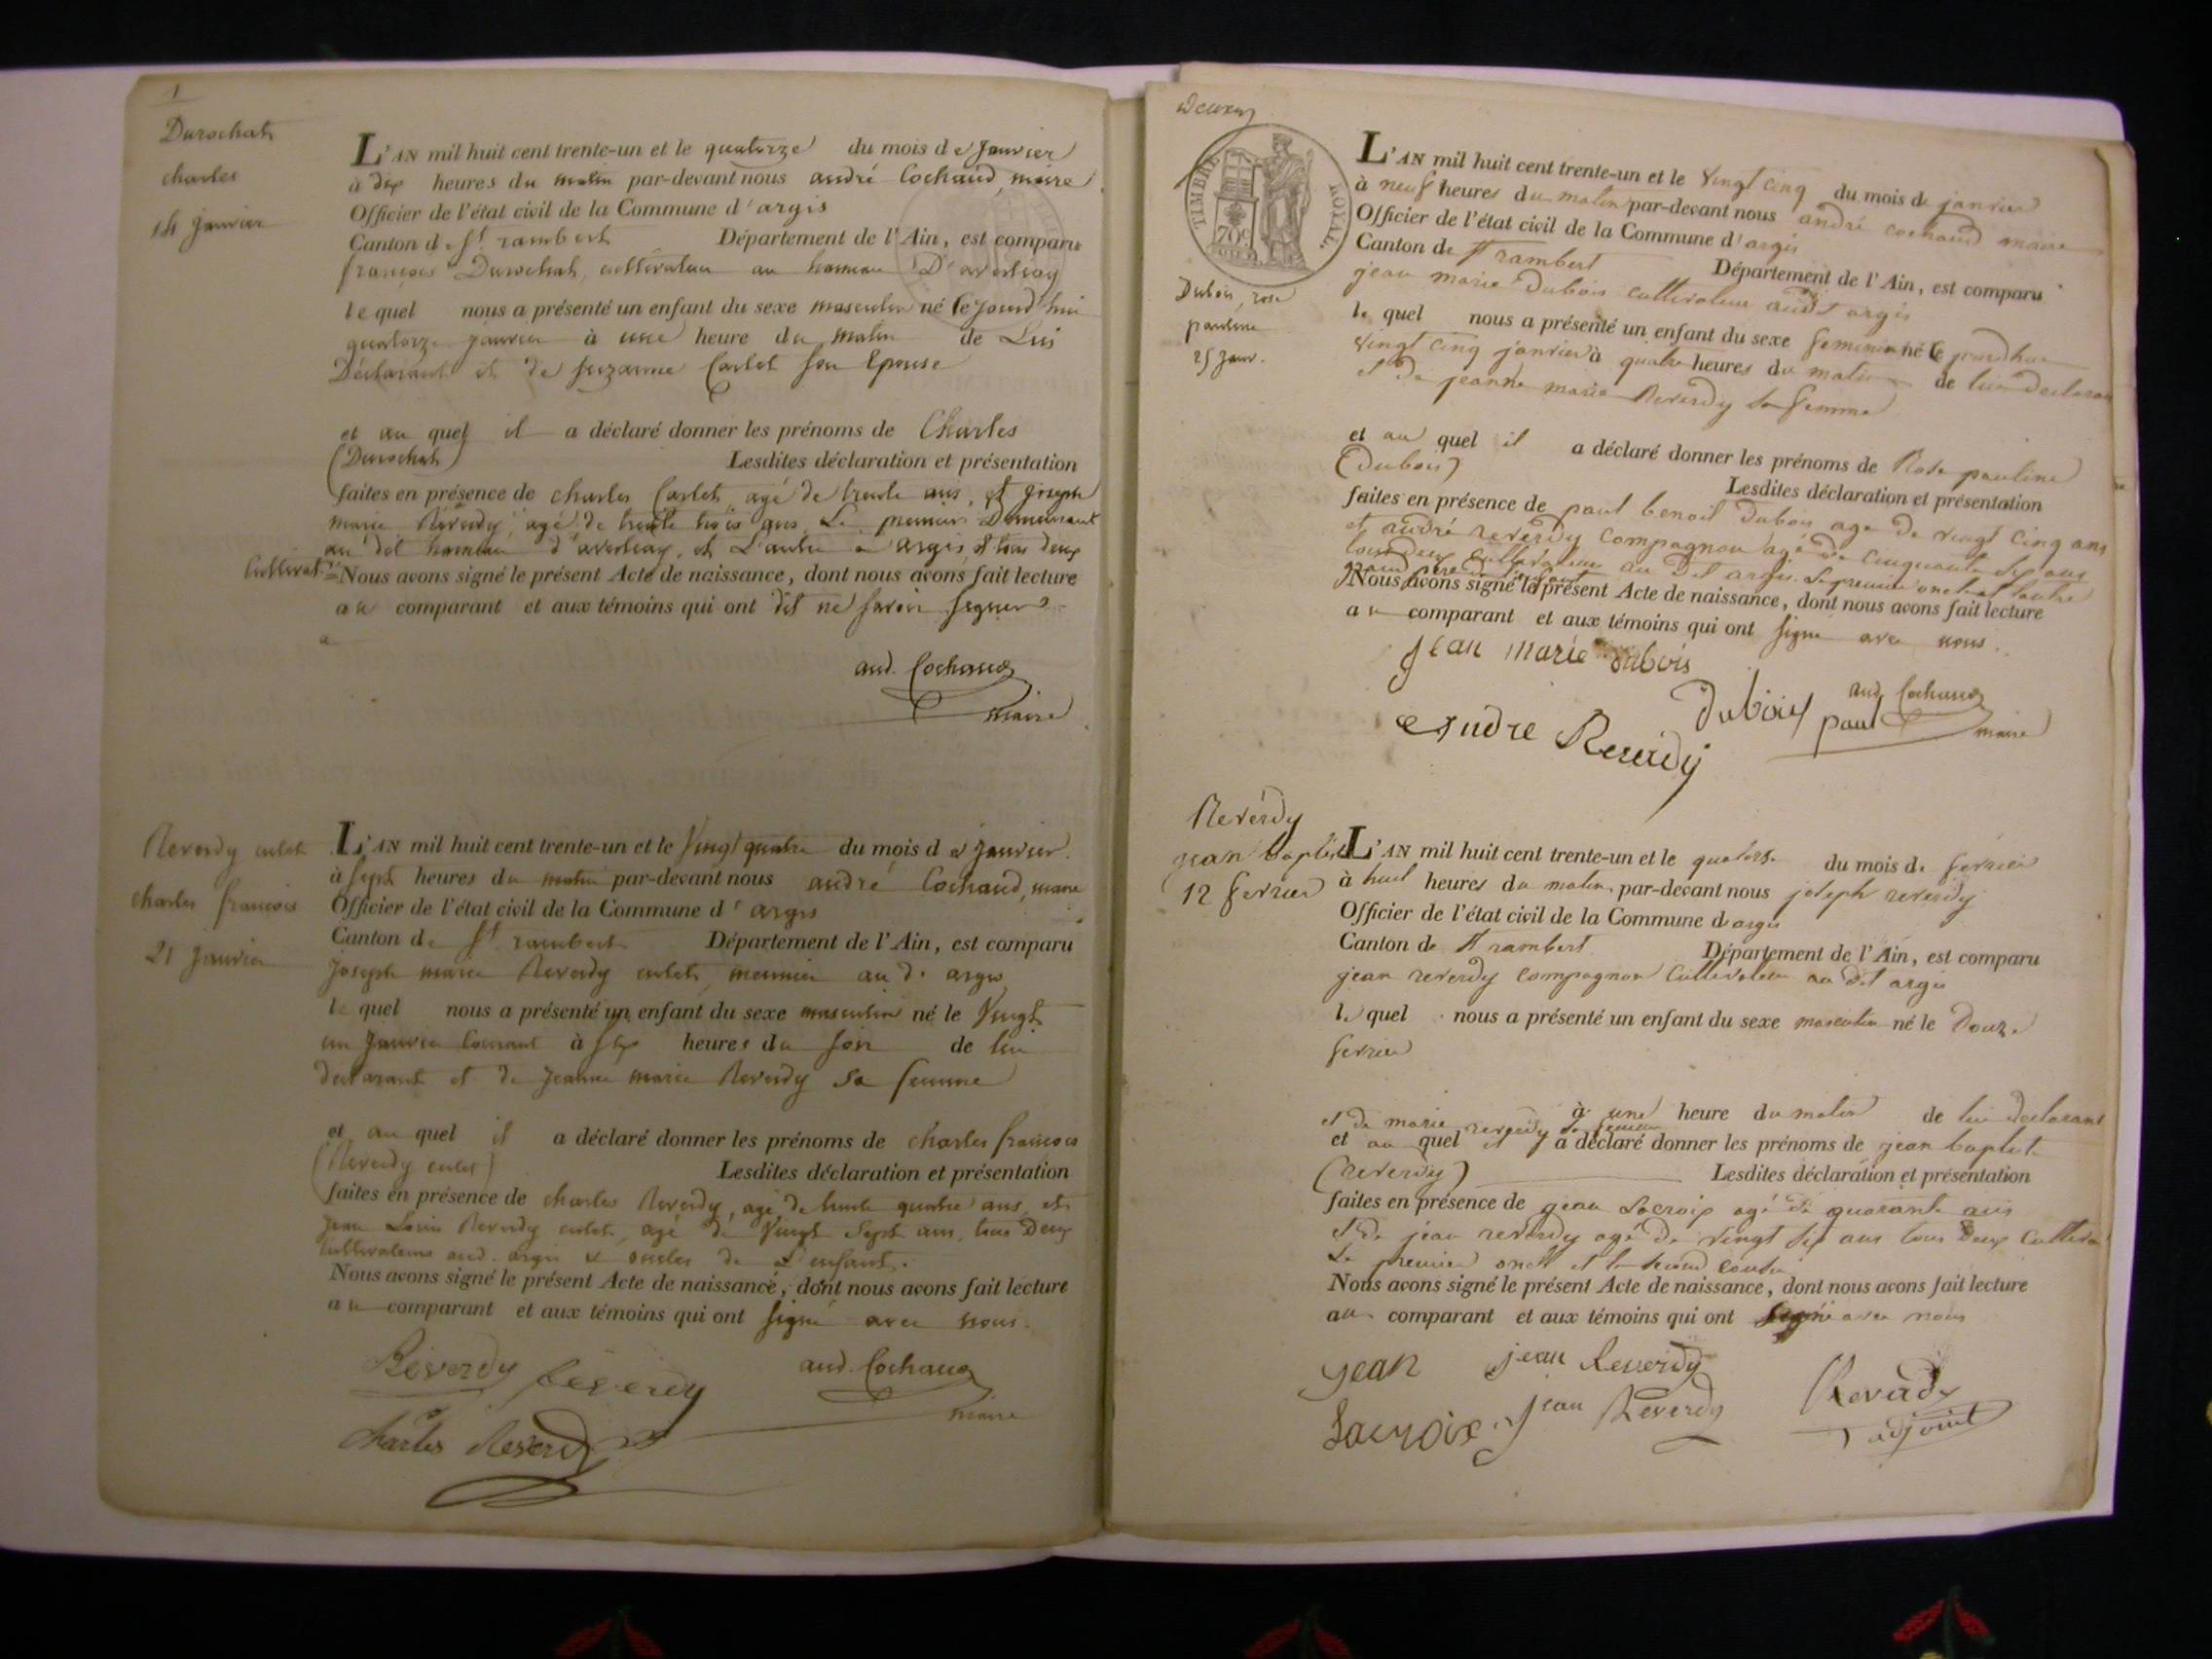 1
Durochat
charles
14 janvier
L'AN mil huit cent trente-un et le quatorze du mois de Janvier
à dix heures du matin par-devant nous andré Cochaud, maire
Officier de l'état civil de la Commune d'argis
Canton de St rambert Département de l'Ain, est comparu
françois Durochat, cultivateur au hameau D'averliay
le quel nous a présenté un enfant du sexe masculin né ce jourd'hui
quatorze janvier à une heure du matin de Lui
Déclarant et de suzanne Carlet son Epouse
et au quel il a déclaré donner les prénoms de Charles
(Durochat) Lesdites déclaration et présentation
faites en présence de charles Carlet, agé de trente ans, et joseph
marie Réverdy, agé de trente trois ans, Le premier Demeurant
au dit hameau d'averliay, et L'autre à argis, et tous deux
Cultivat.rs Nous avons signé le présent Acte de naissance, dont nous avons fait lecture
au comparant et aux témoins qui ont dit ne savoir signer
and. Cochaud
maire
Reverdy
charles françois
21 janvier
L'AN mil huit cent trente-un et le Vingt quatre du mois de janvier
à sept heures du matin par-devant nous andré Cochaud, maire
Officier de l'état civil de la Commune d'argis
Canton de St rambert Département de l'Ain, est comparu
Joseph marie Reverdy meunier au d. argis
le quel nous a présenté un enfant du sexe masculin né le Vingt
un Janvier Courant à six heures du soir de lui
déclarant et de Jeanne marie Reverdy sa femme
et au quel il a déclaré donner les prénoms de charles françois
(Reverdy Lesdites déclaration et présentation
faites en présence de charles Reverdy, agé de trente quatre ans, et
Jean Louis Reverdy agé de Vingt Sept ans, tous Deux
Cultivateurs aud. argis & oncles de L'enfant.
Nous avons signé le présent Acte de naissance, dont nous avons fait lecture
au comparant et aux témoins qui ont signé avec nous.
Réverdy Reverdy and. Cochaud
maire
Charles Reverdy
Deuxe
TIMBRE ROYAL
70c
Dubois, rose
pauline
25 janv.
L'AN mil huit cent trente-un et le vingt cinq du mois de janvier
à neuf heures du matin par-devant nous andré cochaud maire
Officier de l'état civil de la Commune d'argis
Canton de St rambert Département de l'Ain, est comparu
jean marie Dubois cultivateur audit argis
le quel nous a présenté un enfant du sexe feminin né ce jourdhui
vingt cinq janvier à quatre heures du matin de lui declarant
et de jeanne marie Reverdy sa femme
et au quel il a déclaré donner les prénoms de Rose pauline
(Dubois) Lesdites déclaration et présentation
faites en présence de paul benoit Dubois agé de vingt cinq ans
et andré reverdy compagnon agé de cinquante six ans
tous deux cultivateur au Dit argis. Le premier oncle et l'autre
grand pere de l'enfant
Nous avons signé le présent Acte de naissance, dont nous avons fait lecture
au comparant et aux témoins qui ont signé avec nous.
jean marie dubois
and. Cochaud
Dubois paul maire
andre Reverdy
Reverdy
jean baptiste
12 fevrier
L'AN mil huit cent trente-un et le quatorze du mois de fevrier
à huit heures du matin par-devant nous joseph reverdy
Officier de l'état civil de la Commune d'argis
Canton de St rambert Département de l'Ain, est comparu
jean reverdy compagnon Cultivateur au dit argis
le quel nous a présenté un enfant du sexe masculin né le Douze
fevrier
à une heure du matin de lui declarant
et de marie reverdy sa femme
et au quel il a déclaré donner les prénoms de jean baptiste
(reverdy) Lesdites déclaration et présentation
faites en présence de jean Lacroix agé de quarante ans
et de jean reverdy agé de vingt six ans tous deux Cultiva
Le premier oncle et le second cousin
Nous avons signé le présent Acte de naissance, dont nous avons fait lecture
au comparant et aux témoins qui ont signé avec nous
jean jean Reverdy
Lacroix jean Reverdy Reverdy
adjoint